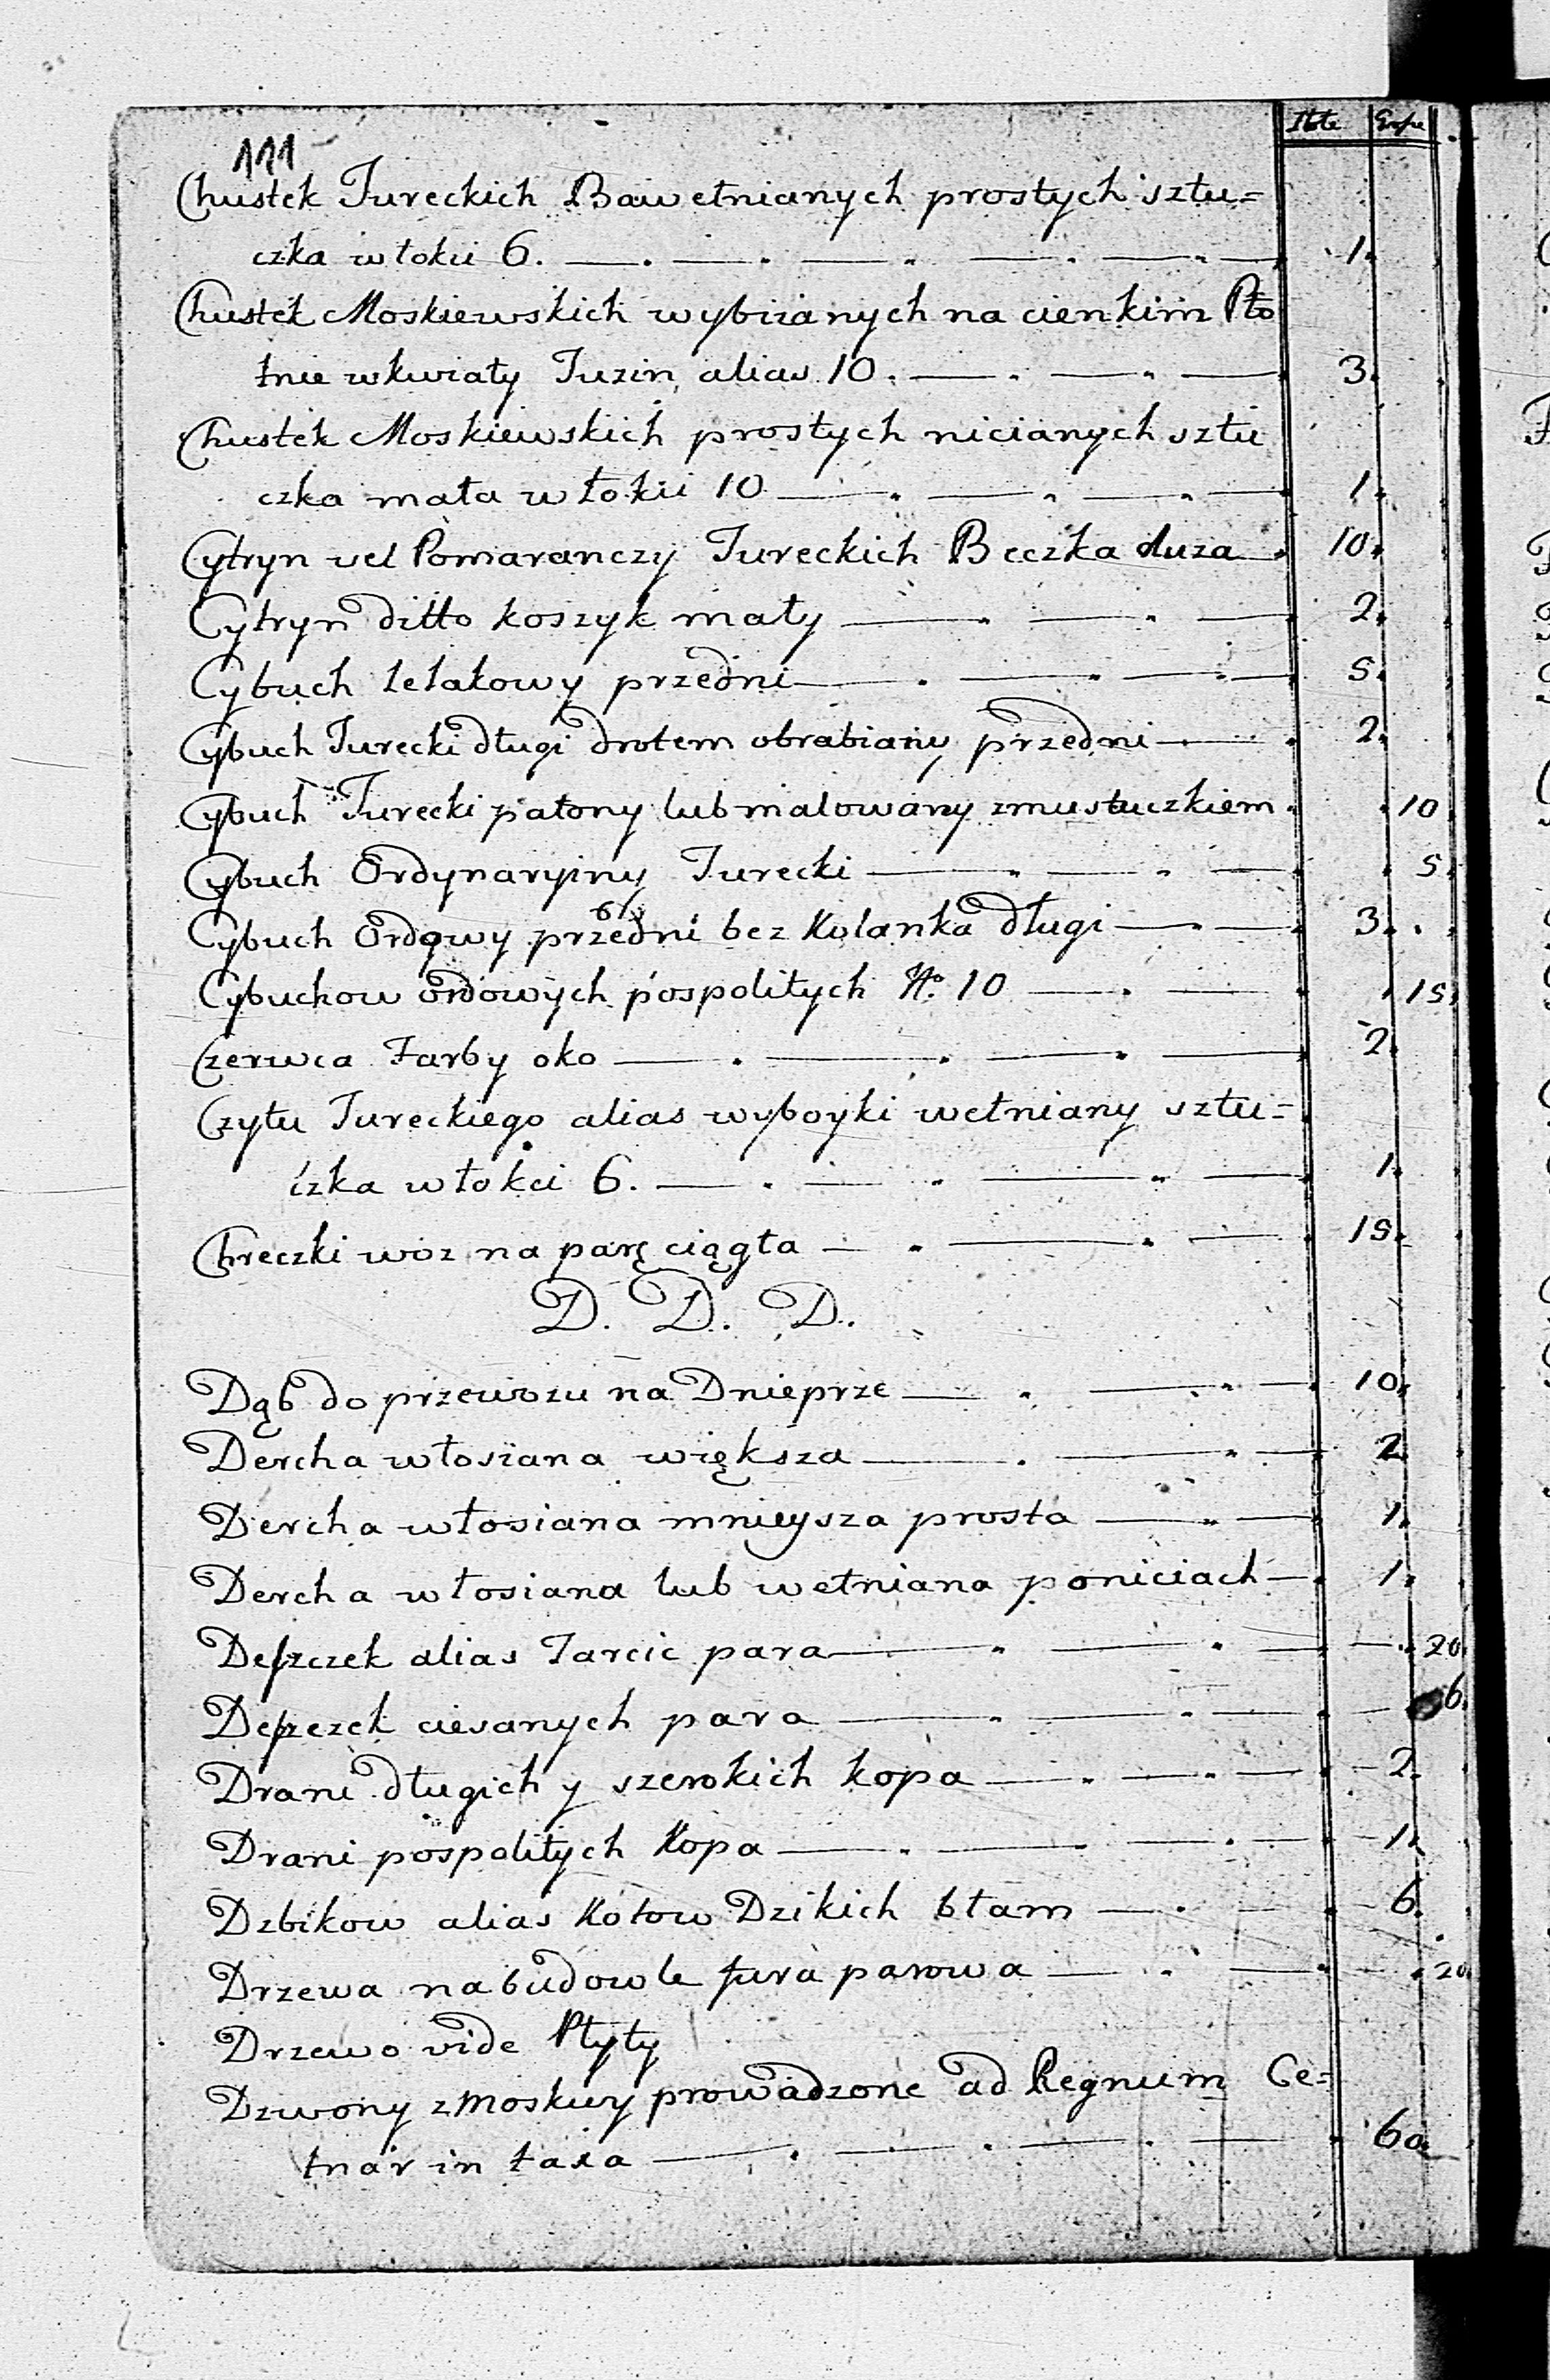 111
Złote Grosze
Chustek Tureckich Bawełnianych prostych sztu=
czka w łokci 6. 1.
Chustek Moskiewskich wybiianych na cienkim Pło
tnie w kwiaty Tuzin alias 10. 3.
Chustek Moskiewskich prostych nicianych sztu
czka mała w łokci 10 1.
Cytryn vel Pomaranczy Tureckich Beczka duza 10.
Cytryn ditto koszyk mały 2.
Cybuch lelakowy przedni 5.
Cybuch Turecki długi drotem obrabiany przedni 2.
Cybuch Turecki palony lub malowany z mustuczkiem 10
Cybuch Ordynaryiny Turecki 5.
Cybuch Ordowy przedni bez Kolanka długi 3.
Cybuchow ordowych pospolitych No. 10 15
Czerwca Farby oko 2.
Czytu Tureckiego alias wyboyki wełniany sztu=
czka w łokci 6. 1.
Chreczki woz na parę ciągła 15.
D. D. D.
Dąb do przewozu na Dnieprze 10.
Dercha włosiana większa 2
Dercha włosiana mnieysza prosta 1.
Dercha włosiana lub wełniana po niciach 1.
Deszczek alias Tarcic para 20
Deszczek ciesanych para 6.
Drani długich y szerokich kopa 2.
Drani pospolitych Kopa 1.
Dzbikow alias Kotow Dzikich błam 6.
Drzewa na budowle fura parowa 20
Drzewo vide Płyty
Dzwony z Moskwy prowadzone ad Regnum Ce=
tnar in taxa 60